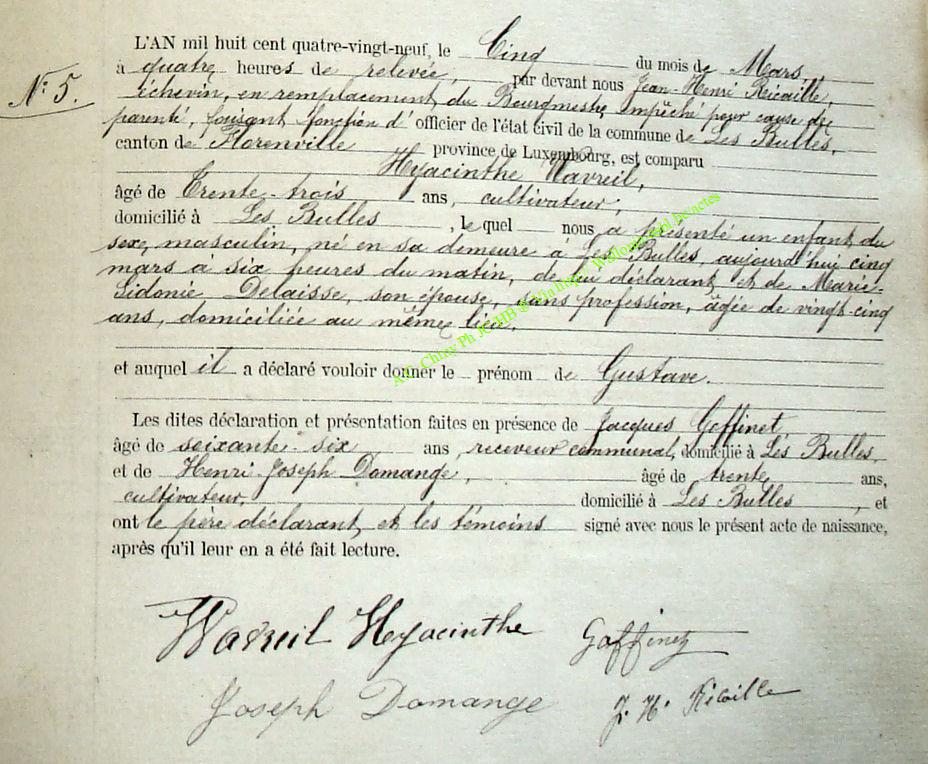 L'AN mil huit cent quatre-vingt-neuf, le Cinq du mois de Mars,
N° 5. à quatre heures de relevée, par devant nous Jean-Henri Ricaille,
échevin, en remplacement du Bourgmestre empêché pour cause de
parenté, faisant fonction d'officier de l'état civil de la commune de Les Bulles,
canton de Florenville province de Luxembourg, est comparu
Hyacinthe Wavreil,
âgé de Trente-trois ans, cultivateur,
domicilié à Les Bulles, lequel nous a présenté un enfant du
sexe masculin, né en sa demeure à Les Bulles, aujourd'hui cinq
mars à six heures du matin, de lui déclarant et de Marie-
Sidonie Delaisse, son épouse, sans profession, âgée de vingt-cinq
ans, domiciliée au même lieu.
et auquel il a déclaré vouloir donner le prénom de Gustave.
Les dites déclaration et présentation faites en présence de Jacques Goffinet
âgé de soixante-six ans, receveur communal, domicilié à Les Bulles,
et de Henri Joseph Domange, âgé de trente ans,
cultivateur, domicilié à Les Bulles, et
ont le père déclarant et les témoins signé avec nous le présent acte de naissance,
après qu'il leur en a été fait lecture.
Wavreil Hyacinthe Goffinet
Joseph Domange J. H. Ricaille